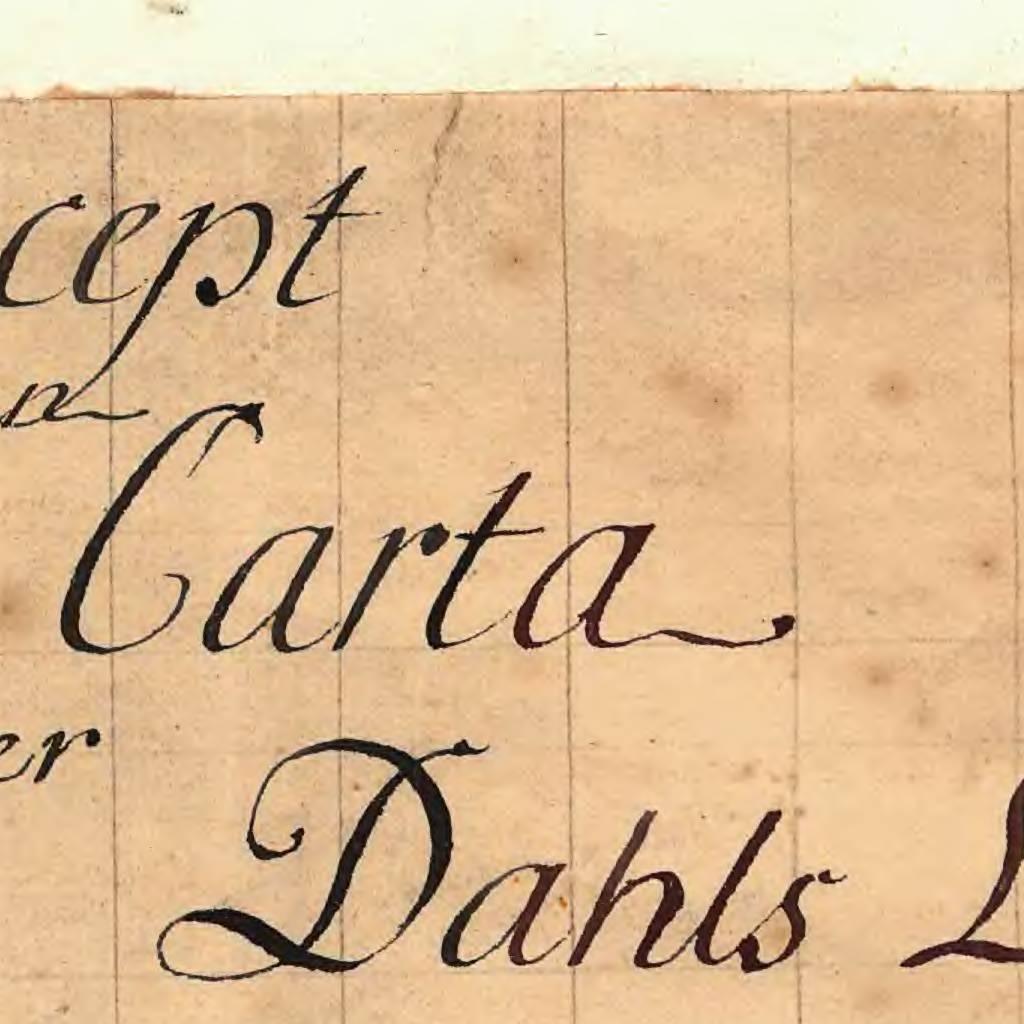 cept
n
Carta
er
Dahls L